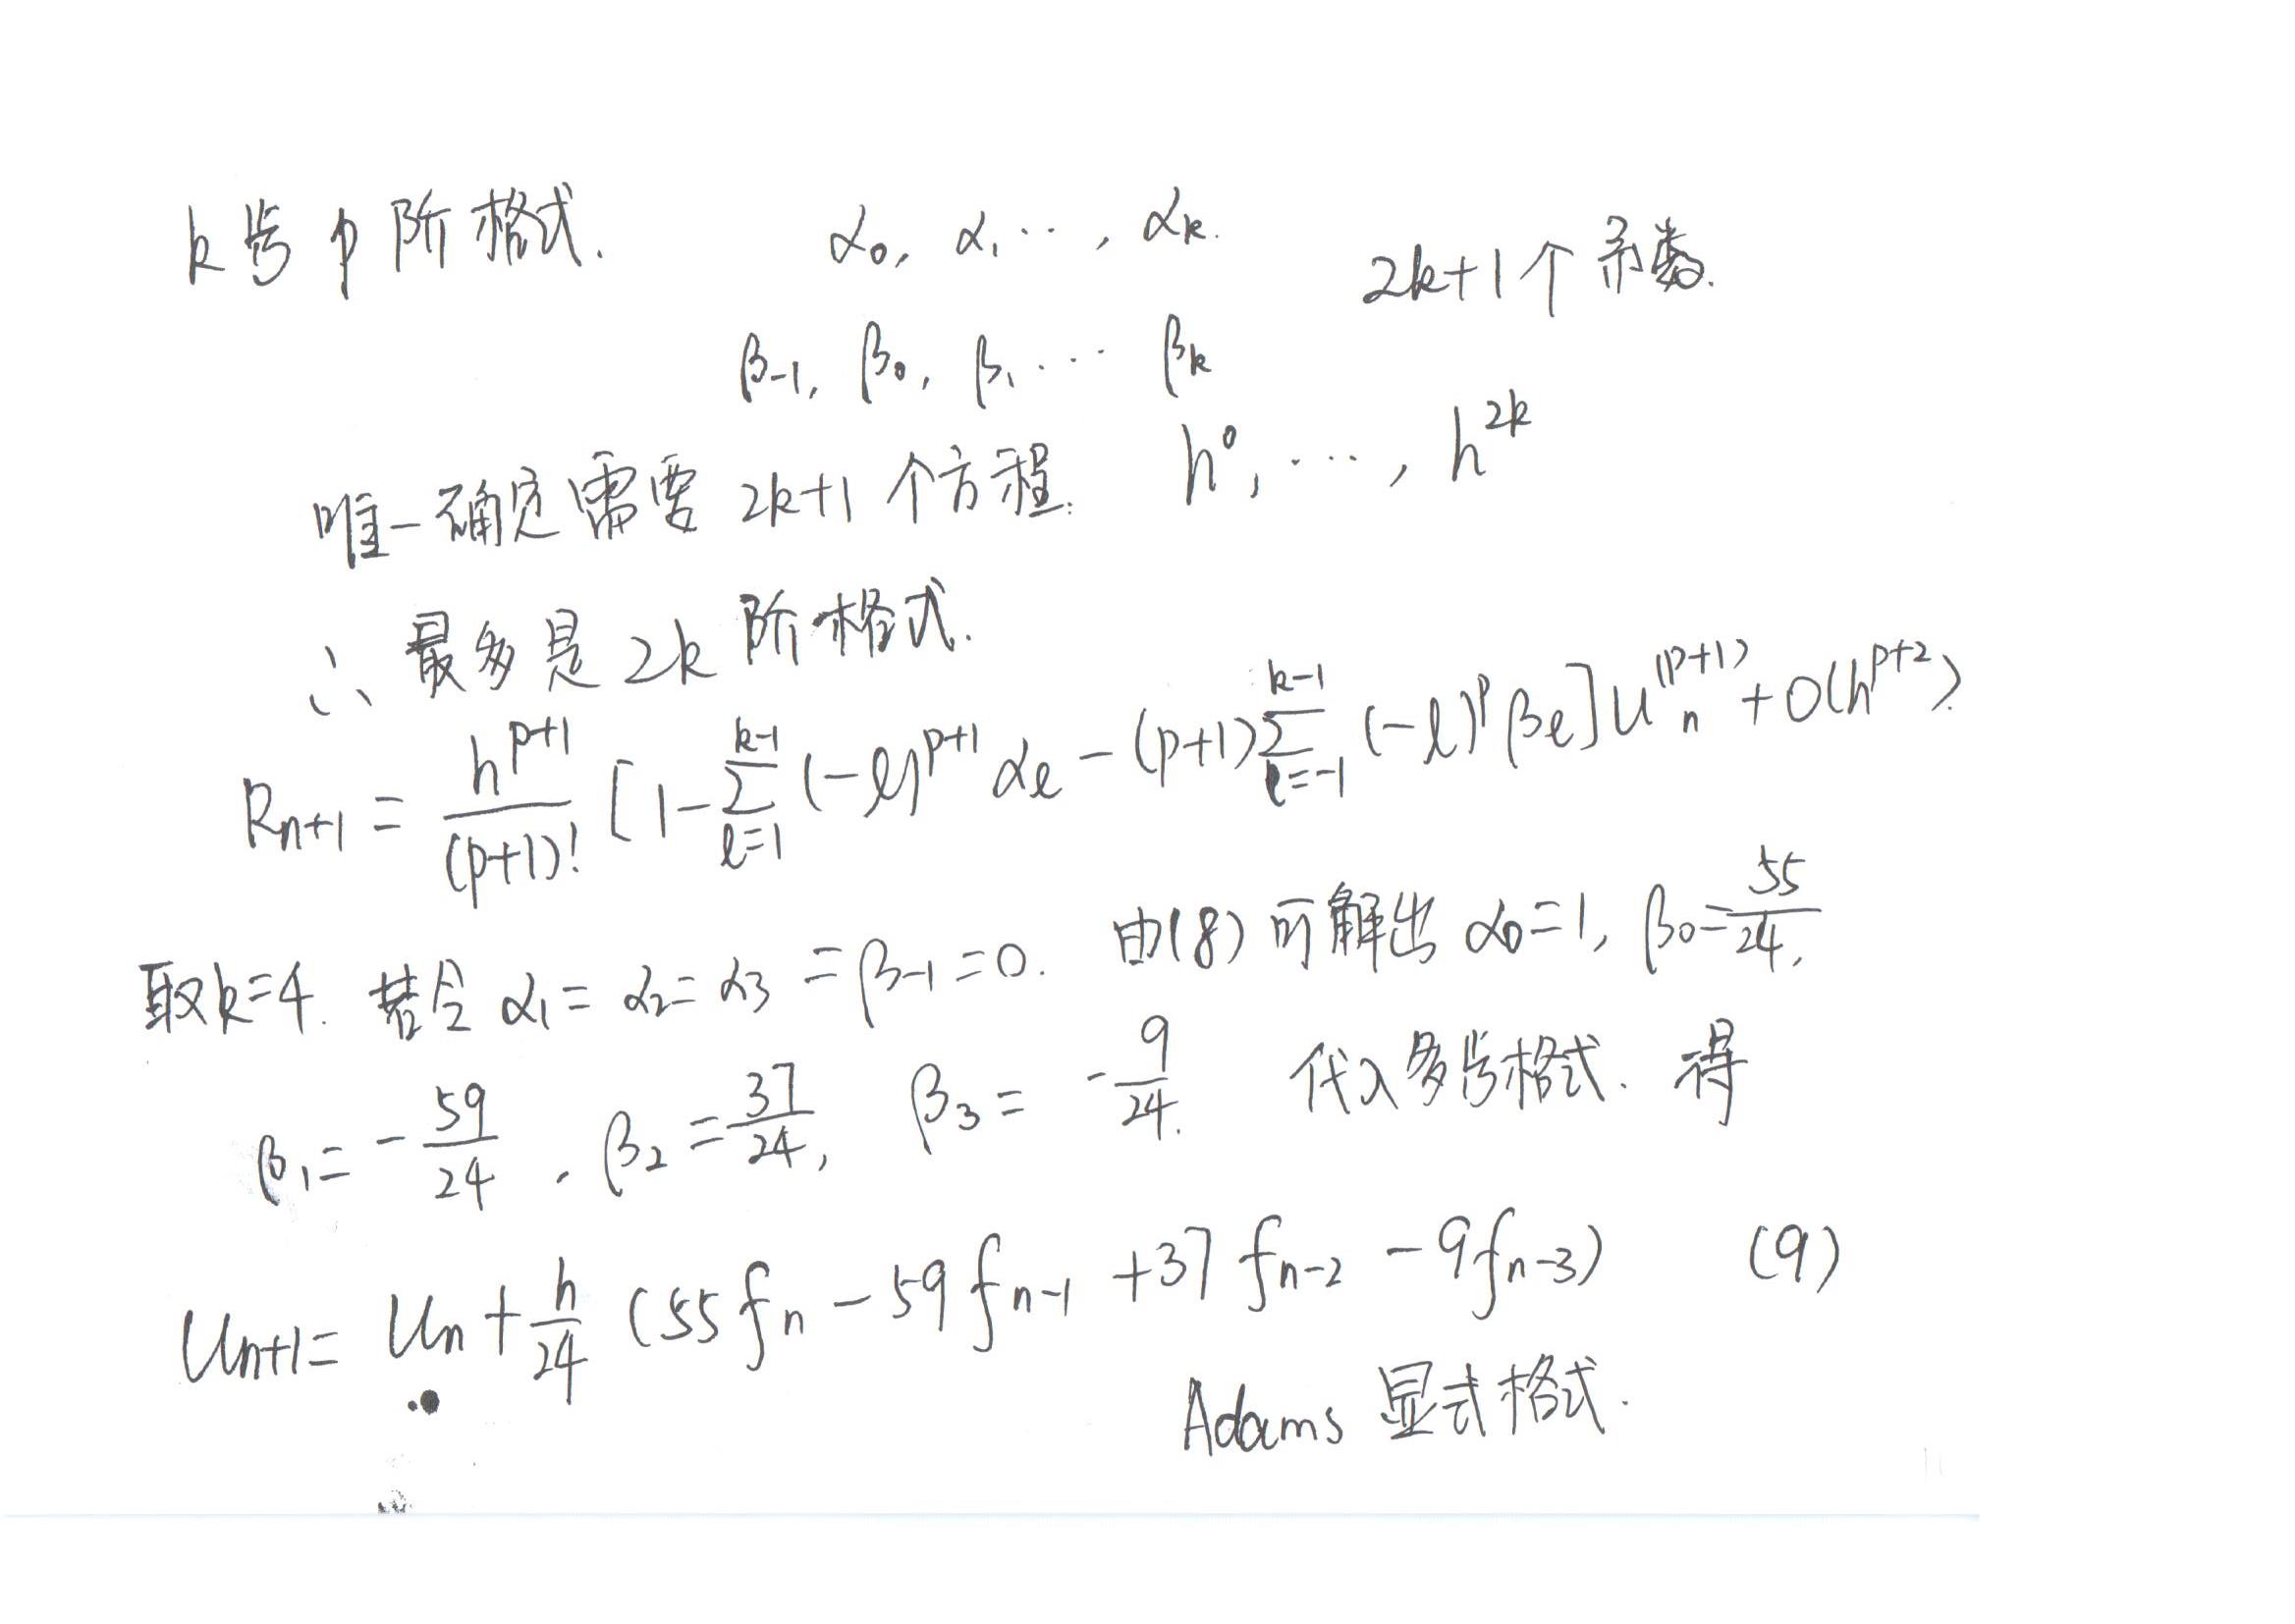 k步p阶格式. α₀, α₁ ⋯, αₖ. 2k+1个系数.
β₋₁, β₀, β₁ ⋯ βₖ
唯一确定需要 2k+1 个方程. h⁰, ⋯, h²ᵏ
∴ 最多是 2k 阶格式.
R_{n+1} = \frac{h^{p+1}}{(p+1)!} [1-\sum_{l=1}^{k-1} (-l)^{p+1} α_l - (p+1)\sum_{l=-1}^{k-1} (-l)^p β_l] u_n^{(p+1)} + O(h^{p+2}).
取k=4. 若令 α₁ = α₂ = α₃ = β₋₁ = 0. 由(8)可解出 α₀=1, β₀=\frac{55}{24},
β₁ = -\frac{59}{24}, β₂ = \frac{37}{24}, β₃ = -\frac{9}{24}. 代入多步格式. 得
U_{n+1} = U_n + \frac{h}{24} (55f_n - 59f_{n-1} + 37f_{n-2} - 9f_{n-3}) (9)
Adams 显式格式.